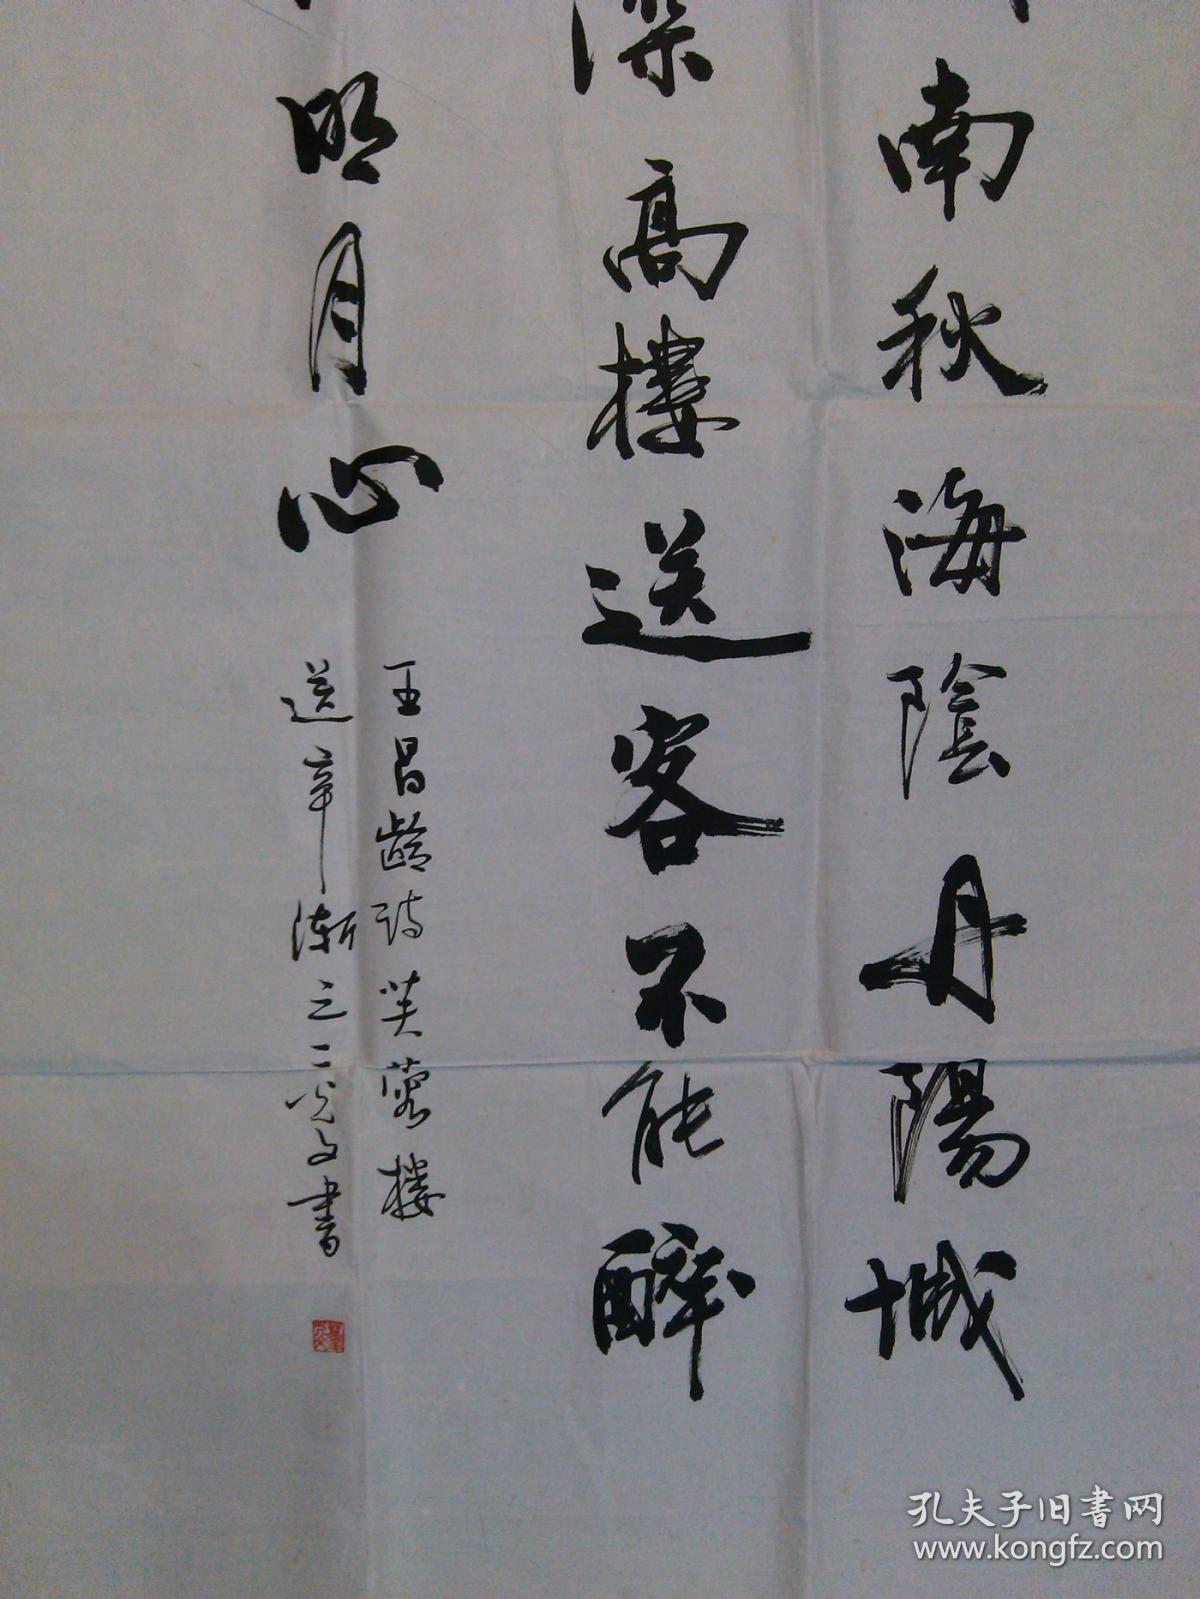 南秋海陰丹陽城
深高樓送客不能醉
明月心
王昌齡詩芙蓉樓
送辛漸之二 文書
孔夫子旧书网
www.kongfz.com